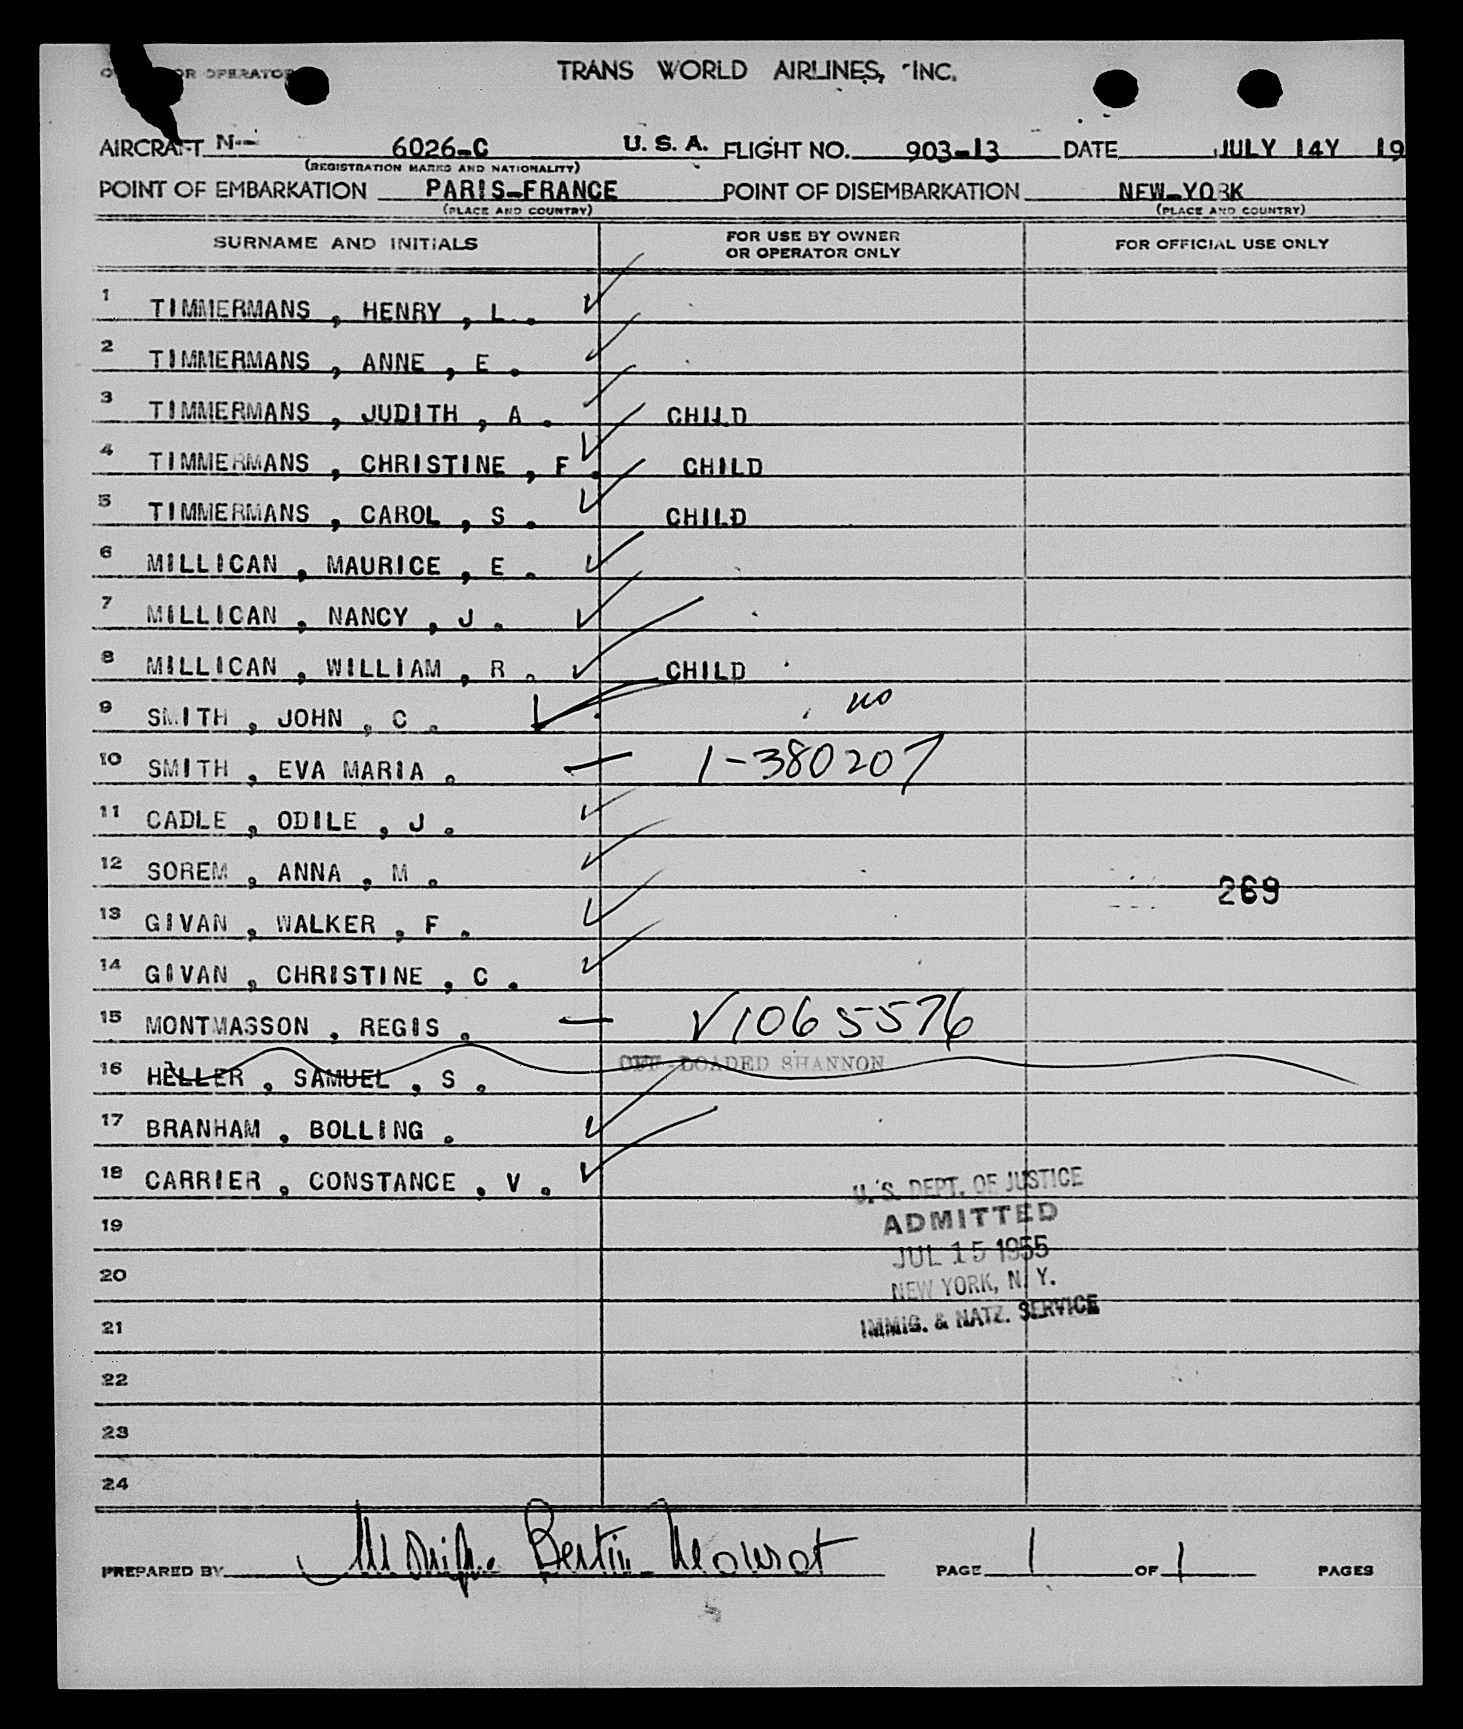 OR OPERATOR
TRANS WORLD AIRLINES, INC.
AIRCRAFT N-- 6026-C U. S. A. FLIGHT NO. 903-13 DATE JULY 14Y 19
(REGISTRATION MARKS AND NATIONALITY)
POINT OF EMBARKATION PARIS-FRANCE POINT OF DISEMBARKATION NEW-YORK
(PLACE AND COUNTRY) (PLACE AND COUNTRY)
SURNAME AND INITIALS FOR USE BY OWNER OR OPERATOR ONLY FOR OFFICIAL USE ONLY
1 TIMMERMANS , HENRY , L . ✓
2 TIMMERMANS , ANNE , E . ✓
3 TIMMERMANS , JUDITH , A . ✓ CHILD
4 TIMMERMANS , CHRISTINE , F . ✓ CHILD
5 TIMMERMANS , CAROL , S . ✓ CHILD
6 MILLICAN , MAURICE , E . ✓
7 MILLICAN , NANCY , J . ✓
8 MILLICAN , WILLIAM , R . ✓ CHILD
9 SMITH , JOHN , C . ✓ no
10 SMITH , EVA MARIA . — 1-380207
11 CADLE , ODILE , J . ✓
12 SOREM , ANNA , M . ✓
269
13 GIVAN , WALKER , F . ✓
14 GIVAN , CHRISTINE , C . ✓
15 MONTMASSON , REGIS . — V1065576
16 HELLER , SAMUEL , S . OFF-LOADED SHANNON
17 BRANHAM , BOLLING . ✓
18 CARRIER , CONSTANCE , V . ✓
U. S. DEPT. OF JUSTICE
19
ADMITTED
JUL 15 1955
20
NEW YORK, N. Y.
21
IMMIG. & NATZ. SERVICE
22
23
24
PREPARED BY Monique Bertin Mourot PAGE 1 OF 1 PAGES